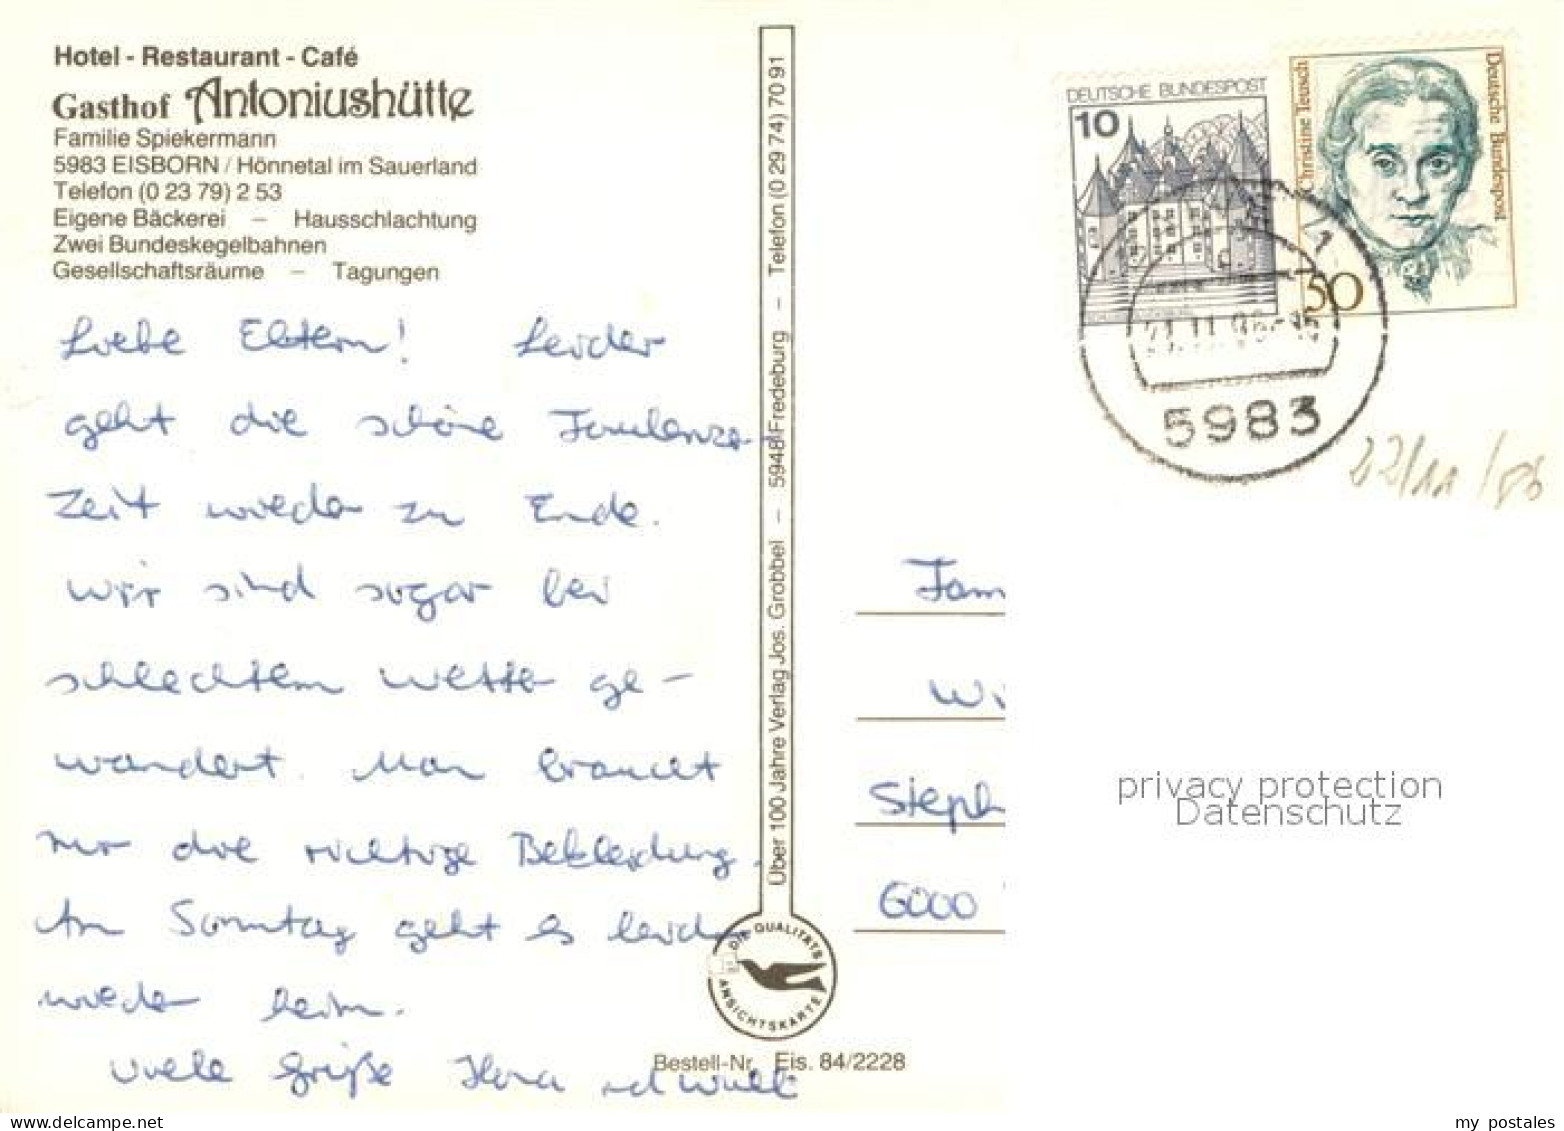 Hotel - Restaurant - Café
Gasthof Antoniushütte
Familie Spiekermann
5983 EISBORN / Hönnetal im Sauerland
Telefon (0 23 79) 2 53
Eigene Bäckerei – Hausschlachtung
Zwei Bundeskegelbahnen
Gesellschaftsräume – Tagungen
Liebe Eltern! Leider
geht die schöne Faulenzer
Zeit wieder zu Ende.
Wir sind sogar bei
schlechtem Wetter ge-
wandert. Man braucht
nur die richtige Bekleidung.
Am Sonntag geht es leider
wieder heim.
Viele Grüße
Über 100 Jahre Verlag Jos. Grobbel – 5948 Fredeburg – Telefon (0 29 74) 70 91
DIE QUALITÄTS
ANSICHTSKARTE
Bestell-Nr. Eis. 84/2228
DEUTSCHE BUNDESPOST
10
Christine Teusch
Deutsche Bundespost
50
1
5983
22/11/86
Fam
Wi
Steph
6000
privacy protection
Datenschutz
delcampe.net
my postales